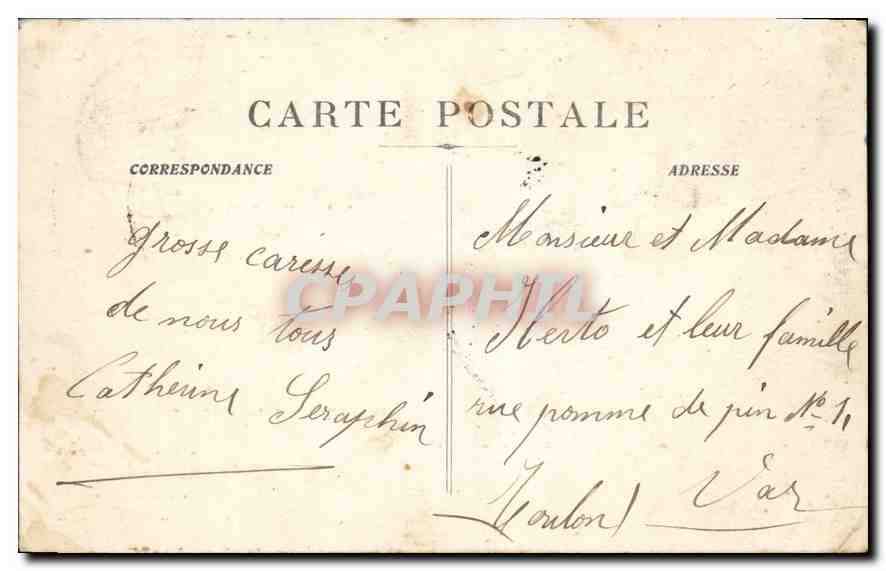 CARTE POSTALE
CORRESPONDANCE
grosse caresse
de nous tous
Catherine Seraphin
ADRESSE
Monsieur et Madame
Herto et leur famille
rue pomme de pin No 1,
Toulon Var
CPAPHIL